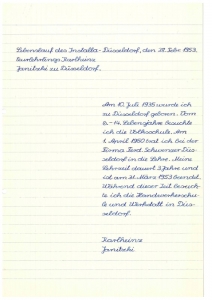 Lebenslauf des Installa- Düsseldorf, den 28. Febr. 1953.
teurlehrlings Karlheinz
Janitzki zu Düsseldorf.
Am 10. Juli 1935 wurde ich
zu Düsseldorf geboren. Vom
6.-14. Lebensjahre besuchte
ich die Volksschule. Am
1. April 1950 trat ich bei der
Firma Ferd. Schwenzer Düs-
seldorf in die Lehre. Meine
Lehrzeit dauert 3 Jahre und
ist am 31. März 1953 beendet.
Während dieser Zeit besuch-
te ich die Handwerkerschu-
le und Werkstatt in Düs-
seldorf.
Karlheinz
Janitzki